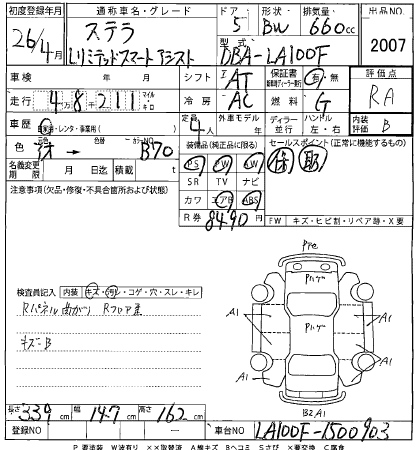 初度登録年月 通称車名・グレード ドア 形状 排気量 出品NO
26/4月 ステラ 5 BW 660cc
Lリミテッドスマートアシスト 型式 DBA-LA100F 2007
車検 年 月 シフト IAT 保証書 有・無 評価点
走行 4万8千211 マイル キロ 冷房 AC 燃料 G RA
車歴 自家用・レンタ・事業用( ) 定員 4人 外車モデル 年 ディラー 並行 ハンドル 左・右 内装評価 B
色 色替 カラーNO B70 装備品(純正品に限る) セールスポイント(正常に機能するもの)
名義変更期限 月 日迄 積載 t PS PW AW
SR TV ナビ
注意事項(欠品・修復・不具合箇所および状態) カワ エアB ABS
R券 8490円 FW キズ・ヒビ割・リペア跡・X要
検査員記入 内装 キズ・汚レ・コゲ・穴・スレ・キレ
Rパネル曲がり Rフロア歪
キズB
Pハゲ
Pハゲ
A1 A1
A1 A1
B2A1
長さ 339cm 幅 147cm 高さ 162cm
登録NO 車台NO LA100F-1500903
P要塗装 W波有り XX取替済 A線キズ Bヘコミ Sサビ X要交換 C腐食